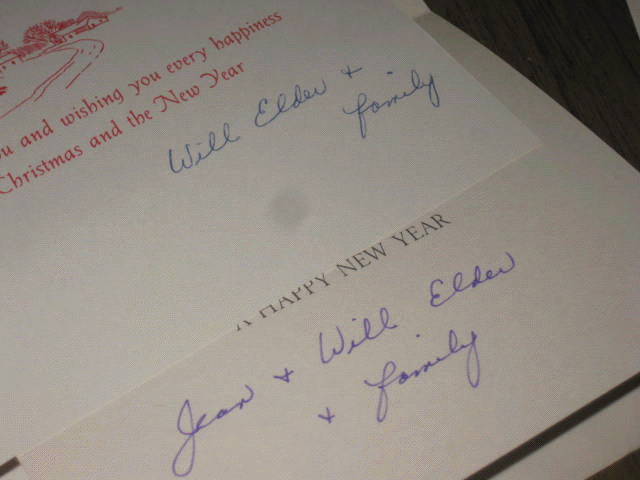 and wishing you every happiness
Christmas and the New Year
Will Elder +
family
A HAPPY NEW YEAR
Jean + Will Elder
+ family